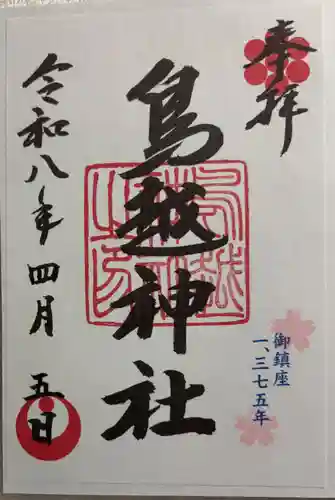 奉拝
御鎮座
一、三七五年
鳥越神社
令和八年四月五日